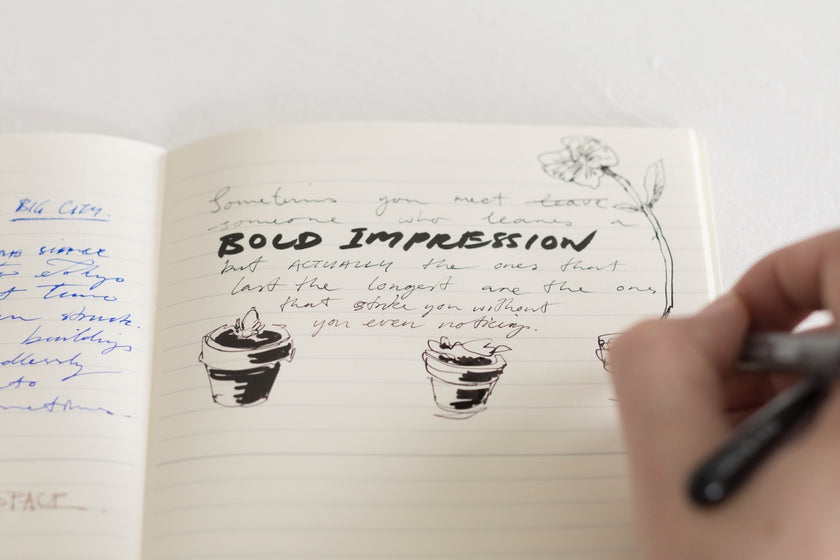 BIG CITY.
since
to tokyo
time
struck.
buildings
to
SPACE
Sometimes you meet leave
someone who leaves a
BOLD IMPRESSION
but ACTUALLY the ones that
last the longest are the ones
that strike you without
you even noticing.